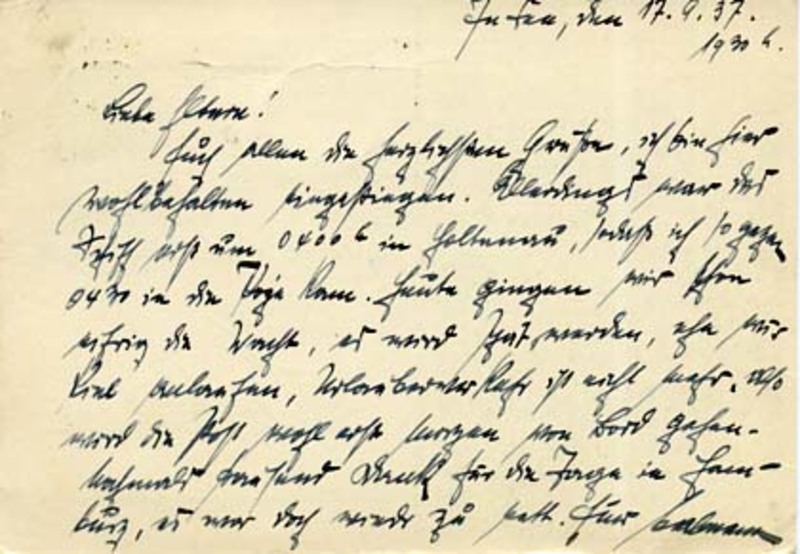 In See, den 17.9.37.
1930 h.
Liebe Eltern!
Euch allen die herzlichsten Grüße, ich bin hier
wohlbehalten eingestiegen. Allerdings war das
Schiff erst um 0400 h in Holtenau, sodaß ich so gegen
0430 in die Koje kam. Heute gingen wir schon
eifrig die Wacht, es wird spät werden, ehe wir
Kiel anlaufen, Urlauberverkehr ist nicht mehr. Also
wird die Post wohl erst morgen von Bord gehen.
Nochmals tausend Dank für die Tage in Ham-
burg, es war doch wieder zu nett. Euer